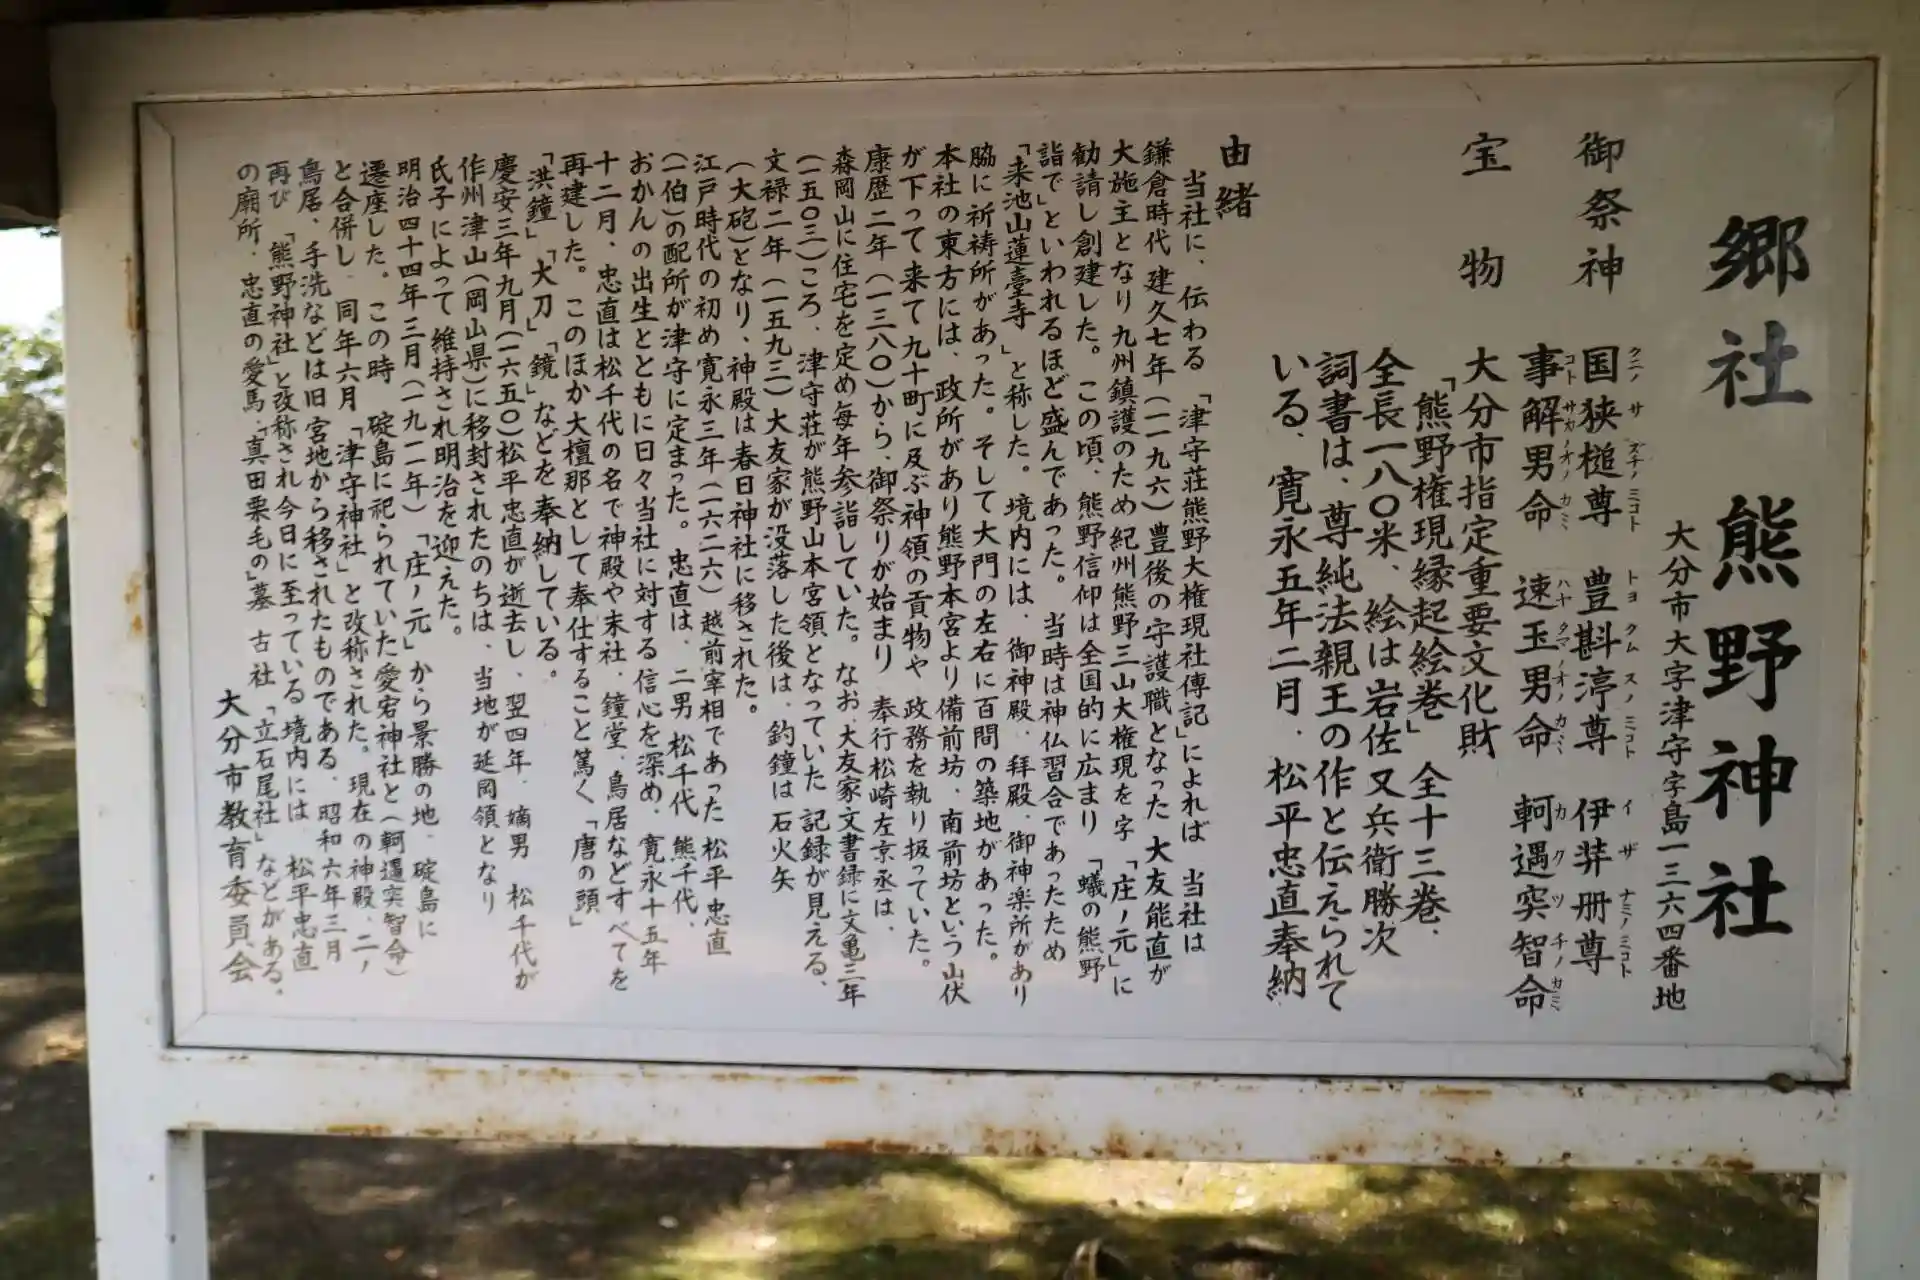 郷社 熊野神社
大分市大字津守字島一三六四番地
御祭神 国狭槌尊 豊斟渟尊 伊弉冊尊
クニノ サ ズチノミコト トヨ クム スノ ミコト イザ ナミノミコト
事解男命 速玉男命 軻遇突智命
コト サカノオノ カミ ハヤ タマノオノ カミ カクツチノカミ
宝物 大分市指定重要文化財
「熊野権現縁起絵巻」 全十三巻、
全長一八〇米、絵は岩佐又兵衛勝次
詞書は、尊純法親王の作と伝えられて
いる、寛永五年二月、松平忠直奉納
由緒
当社に、伝わる「津守荘熊野大権現社傳記」によれば 当社は
鎌倉時代 建久七年(一一九六)豊後の守護職となった 大友能直が
大施主となり九州鎮護のため紀州熊野三山大権現を字「庄ノ元」に
勧請し創建した。この頃、熊野信仰は全国的に広まり「蟻の熊野
詣で」といわれるほど盛んであった。当時は神仏習合であったため
「来池山蓮臺寺」と称した。境内には、御神殿、拝殿、御神楽所があり
脇に祈祷所があった。そして大門の左右に百間の築地があった。
本社の東方には、政所があり熊野本宮より備前坊、南前坊という山伏
が下って来て九十町に及ぶ神領の貢物や 政務を執り扱っていた。
康歴二年(一三八〇)から、御祭りが始まり 奉行松崎左京丞は、
森岡山に住宅を定め毎年参詣していた。なお、大友家文書録に文亀三年
(一五〇三)ころ、津守荘が熊野山本宮領となっていた 記録が見える、
文禄二年(一五九三)大友家が没落した後は、釣鐘は石火矢
(大砲)となり、神殿は春日神社に移された。
江戸時代の初め寛永三年(一六二六)越前宰相であった 松平忠直
(一伯)の配所が津守に定まった。忠直は、二男 松千代 熊千代、
おかんの出生とともに日々当社に対する信心を深め、寛永十五年
十二月、忠直は松千代の名で神殿や末社、鐘堂、鳥居などすべてを
再建した。このほか大檀那として奉仕すること篤く「唐の頭」
「洪鐘」「大刀」「鏡」などを奉納している。
慶安三年九月(一六五〇)松平忠直が逝去し、翌四年、嫡男 松千代が
作州津山(岡山県)に移封されたのちは、当地が延岡領となり
氏子によって維持され明治を迎えた。
明治四十四年三月(一九一一年)「庄ノ元」から景勝の地、碇島に
遷座した。この時 碇島に祀られていた愛宕神社と(軻遇突智命)
と合併し、同年六月「津守神社」と改称された。現在の神殿、二ノ
鳥居、手洗などは旧宮地から移されたものである、昭和六年三月
再び「熊野神社」と改称され今日に至っている 境内には、松平忠直
の廟所、忠直の愛馬「真田栗毛の」墓 古社「立石尾社」などがある。
大分市教育委員会